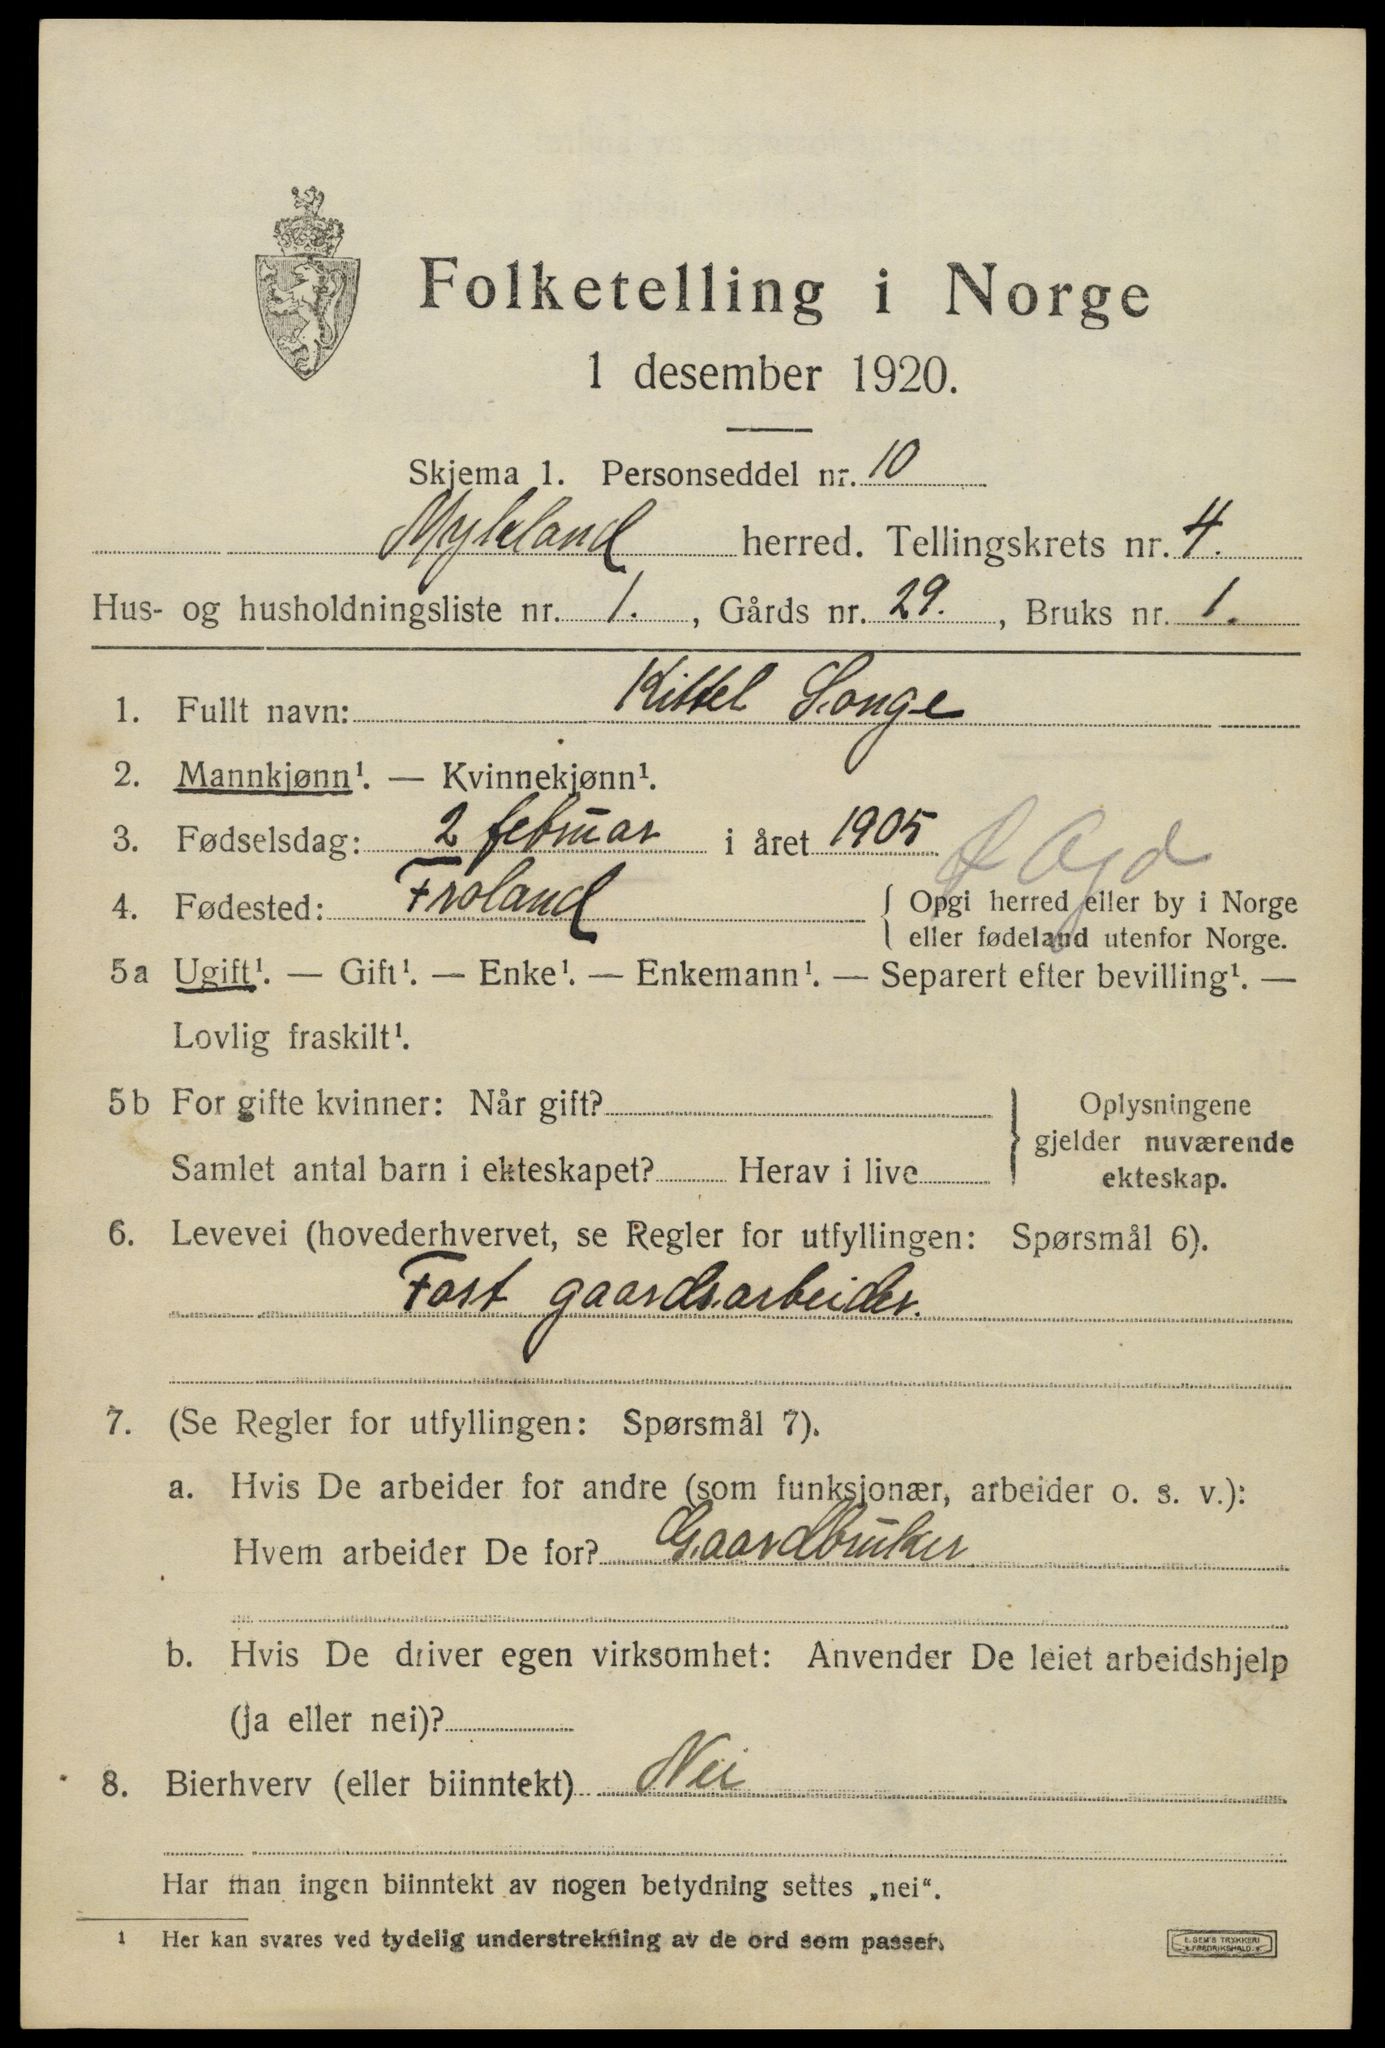 Folketelling i Norge
1 desember 1920.
Skjema 1. Personseddel nr. 10
Mykland herred. Tellingskrets nr. 4.
Hus- og husholdningsliste nr. 1., Gårds nr. 29., Bruks nr. 1.
1. Fullt navn: Kittel Songe
2. Mannkjønn¹. — Kvinnekjønn¹.
3. Fødselsdag: 2 februar i året 1905
4. Fødested: Froland { Opgi herred eller by i Norge
eller fødeland utenfor Norge.
5a Ugift¹. — Gift¹. — Enke¹. — Enkemann¹. — Separert efter bevilling¹. —
Lovlig fraskilt¹.
5b For gifte kvinner: Når gift?
Samlet antal barn i ekteskapet? Herav i live
} Oplysningene
gjelder nuværende
ekteskap.
6. Levevei (hovederhvervet, se Regler for utfyllingen: Spørsmål 6).
Fast gaardsarbeider.
7. (Se Regler for utfyllingen: Spørsmål 7).
a. Hvis De arbeider for andre (som funksjonær, arbeider o. s. v.):
Hvem arbeider De for? Gaardbruker
b. Hvis De driver egen virksomhet: Anvender De leiet arbeidshjelp
(ja eller nei)?
8. Bierhverv (eller biinntekt) Nei
Har man ingen biinntekt av nogen betydning settes „nei“.
¹ Her kan svares ved tydelig understrekning av de ord som passer.
E. SEM'S TRYKKERI
FREDRIKSHALD